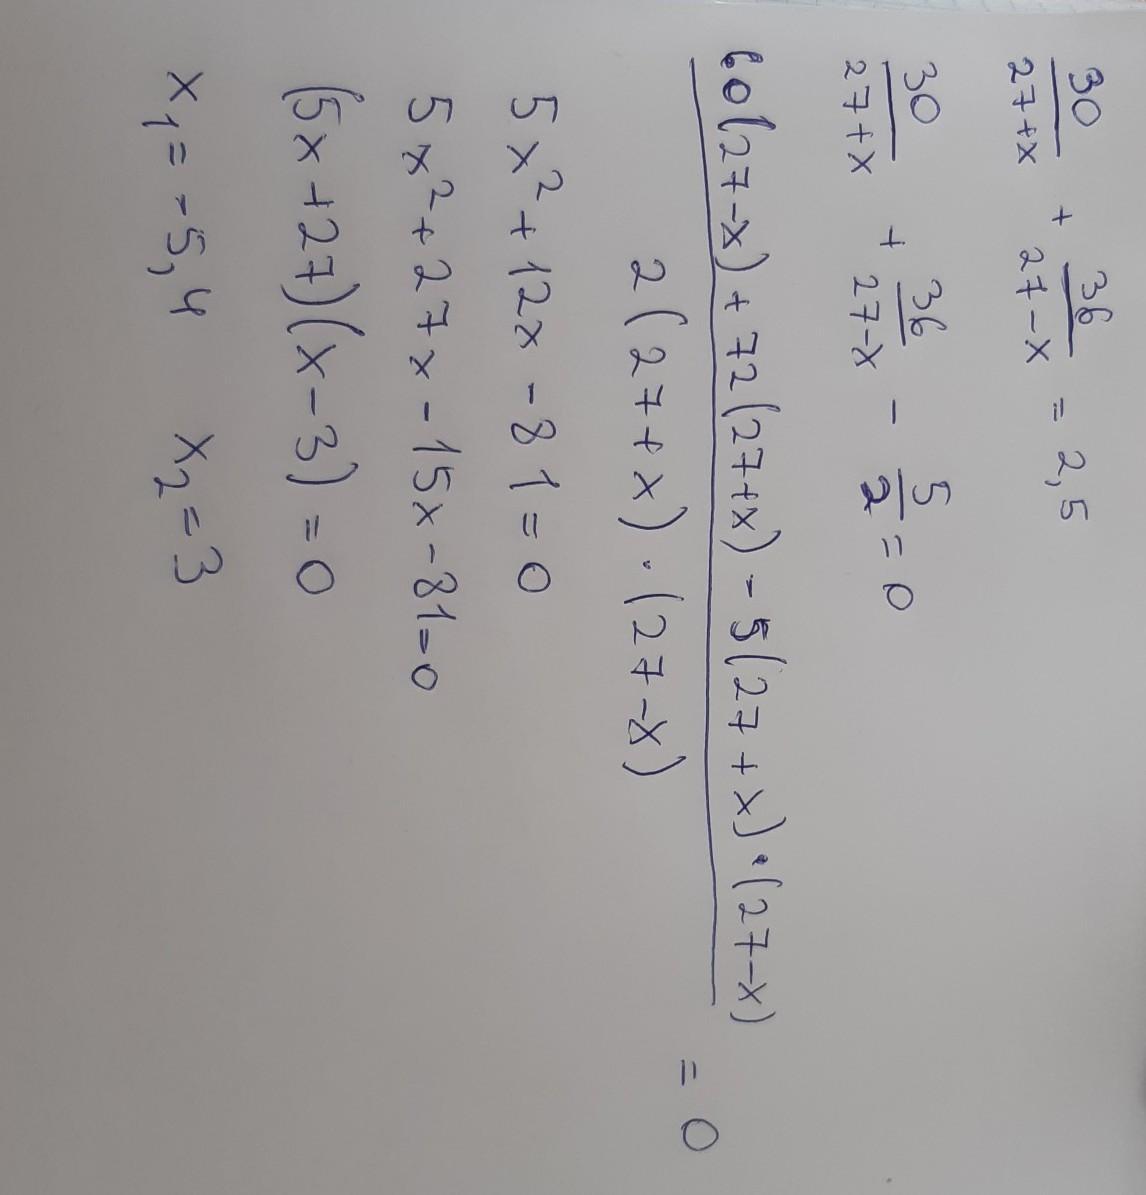 30/(27+x) + 36/(27-x) = 2,5
30/(27+x) + 36/(27-x) - 5/2 = 0
(60(27-x) + 72(27+x) - 5(27+x)·(27-x))/(2(27+x)·(27-x)) = 0
5x² + 12x - 81 = 0
5x² + 27x - 15x - 81 = 0
(5x + 27)(x - 3) = 0
x₁ = -5,4 x₂ = 3